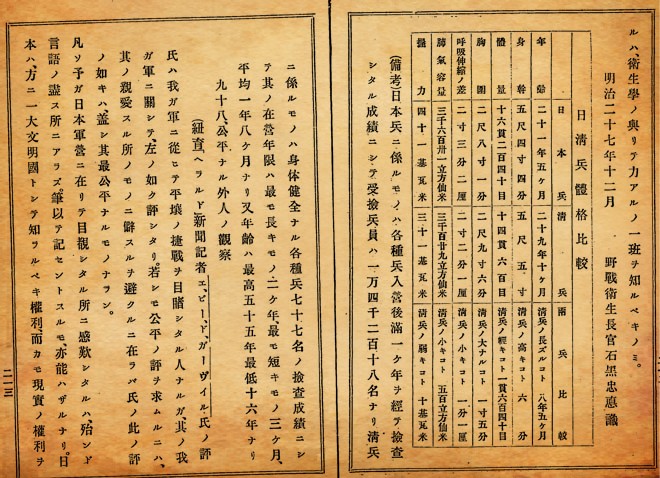 ルハ、衛生學ノ與リテ力アルノ一班ヲ知ルベキノミ。
明治二十七年十二月 野戰衛生長官石黑忠悳識
日清兵體格比較
日本兵 清兵 兩兵比較
年齡 二十一年五ヶ月 二十九年十ヶ月 清兵ノ長ズルコト 八年五ヶ月
身幹 五尺四寸四分 五尺五寸 清兵ノ高キコト 六分
體量 十六貫二百四十目 十四貫六百目 清兵ノ輕キコト 一貫六百四十目
胸圍 二尺八寸一分 二尺九寸六分 清兵ノ大ナルコト 一寸五分
呼吸伸縮ノ差 二寸三分二厘 二寸二分一厘 清兵ノ小キコト 一分一厘
肺氣容量 三千六百卅一立方仙米 三千百廿九立方仙米 清兵ノ小キコト 五百立方仙米
握力 四十一基瓦米 三十一基瓦米 清兵ノ弱キコト 十基瓦米
(備考)日本兵ニ係ルモノハ各種兵入營後滿一ヶ年ヲ經テ撿查
シタル成績ニシテ受撿兵員ハ一万四千二百十八名ナリ淸兵
ニ係ルモノハ身体健全ナル各種兵七十七名ノ撿查成績ニシ
テ其ノ在營年限ハ最モ長キモノ二ケ年、最モ短キモノ三ケ月、
平均一年八ケ月ナリ又年齢ハ最高五十五年最低十六年ナリ
九十八、公平ナル外人ノ觀察
(紐育、ヘラルド)新聞記者エ、ビー、ド、ガーヴイル氏ノ評
氏ハ我ガ軍ニ從ヒテ平壤ノ捷戰ヲ目睹シタル人ナルガ、其ノ我
ガ軍ニ關シテ、左ノ如ク評シタリ。若シモ公平ノ評ヲ求ムルニハ、
其ノ親愛スル所ノモノニ僻スルヲ避クルニ在ラバ氏ノ此ノ評
ノ如キハ、蓋シ其最公平ナルモノナラン。
凡ソ予ガ日本軍營ニ在リテ目觀シタル所ニ感歎シタルハ殆ンド
言語ノ盡ス所ニアラズ。筆以テ記セントスルモ、亦能ハザルナリ。日
本ハ、方ニ一大文明國トシテ知ラルベキ權利、而カモ現實ノ權利ヲ
二一三